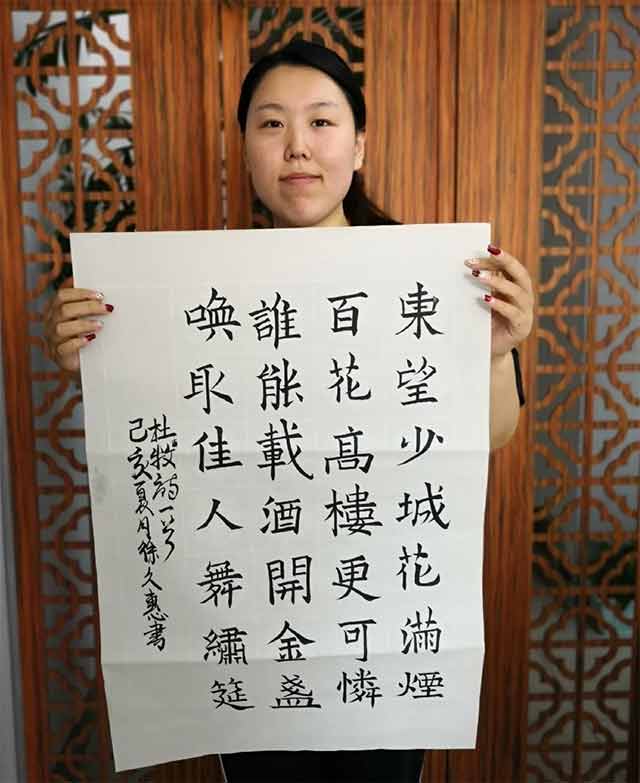 東望少城花滿煙
百花高樓更可憐
誰能載酒開金盞
喚取佳人舞繡筵
杜牧詩一首
己亥夏月徐久惠書